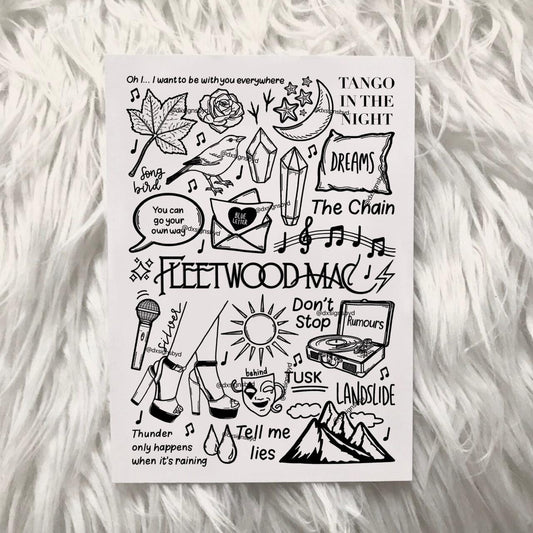 Oh I... I want to be with you everywhere
TANGO
IN THE
NIGHT
@dxsignsbyd
@dxsignsbyd
DREAMS
Song
bird
@dxsignsbyd
The Chain
You can
go your
own way
BLUE
LETTER
@dxsignsbyd
@dxsignsbyd
FLEETWOOD MAC
silver
Don't
Stop
@dxsignsbyd
Rumours
@dxsignsbyd
behind
TUSK
@dxsignsbyd
LANDSLIDE
Thunder
only happens
when it's raining
@dxsignsbyd
Tell me
lies